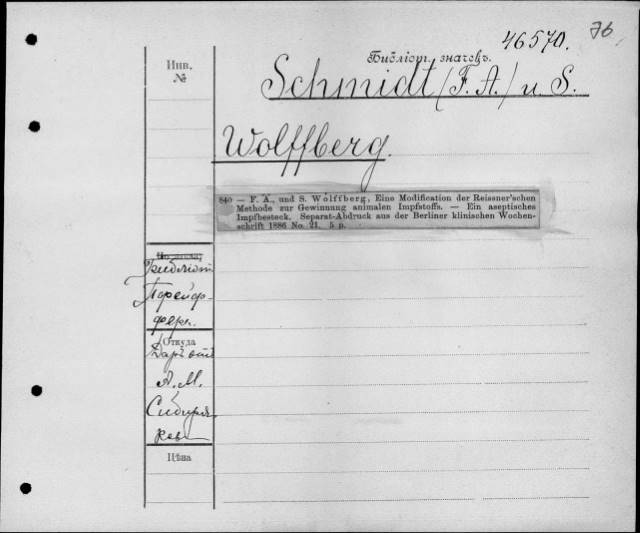 76
46570.
Библіот. значекъ.
Инв.
№
Schmidt (F. A.) u. S.
Wolffberg.
840 — F. A., und S. Wolffberg, Eine Modification der Reissner'schen
Methode zur Gewinnung animalen Impfstoffs. — Ein aseptisches
Impfbesteck. Separat-Abdruck aus der Berliner klinischen Wochen-
schrift 1886 No. 21. 5 p.
Библіот.
Откуда
Даръ отъ
А. М.
Сибиря-
кова
Цѣна